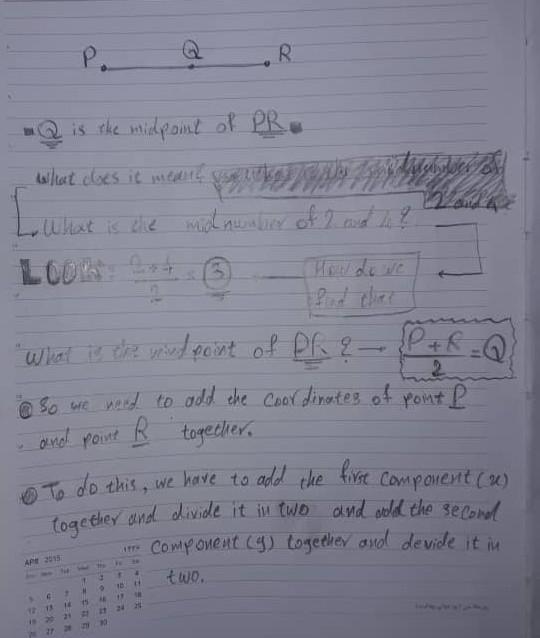 P Q R
Q is the midpoint of PR
What does it mean?
2 and 4
What is the midnumber of 2 and 4?
LOOK: 2+4/2 = 3 How do we
find that
What is the midpoint of PR? → P+R/2 = Q
So we need to add the coordinates of point P
and point R together.
To do this, we have to add the first component (x)
together and divide it in two and add the second
component (y) together and devide it in
two.
APR 2015
1 2 3 4
5 6 7 8 9 10 11
12 13 14 15 16 17 18
19 20 21 22 23 24 25
26 27 28 29 30